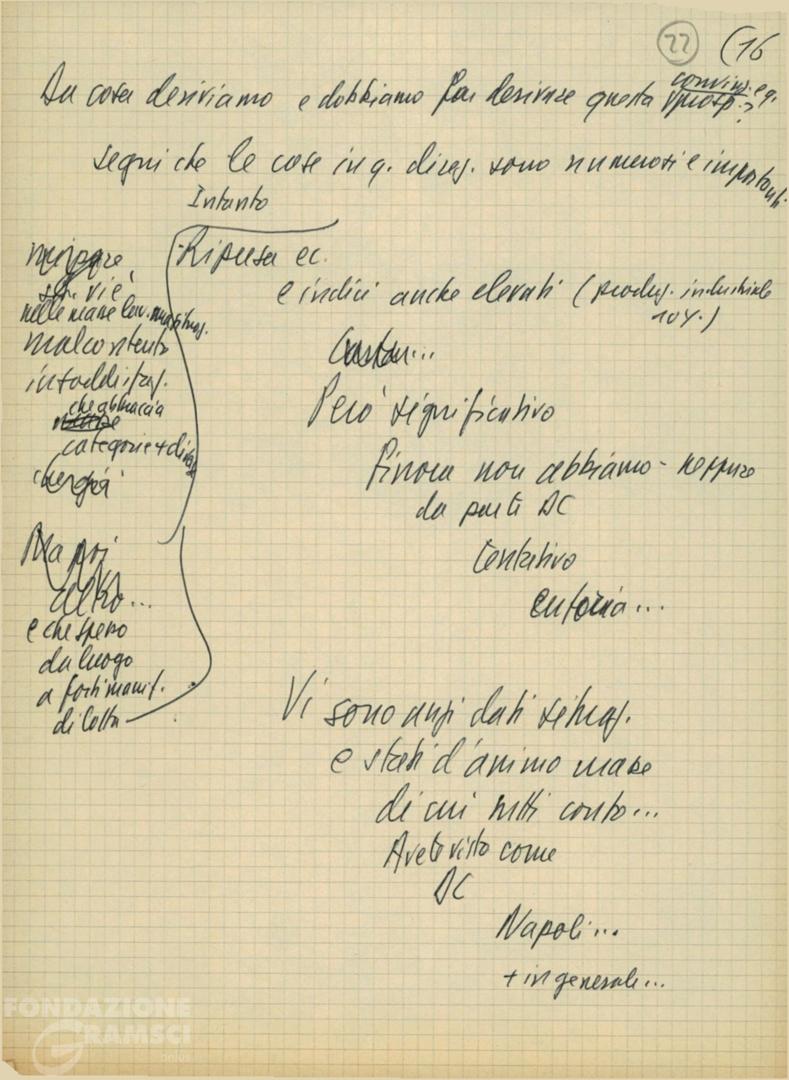 22 (16
Da cosa deriviamo e dobbiamo far derivare questa convinz. e q.
prosp.?
segni che le cose in q. direz. sono numerosi e importanti
Intanto
Ripresa ec.
e indici anche elevati (produz. industriale
10%.)
Però significativo
Finora non abbiamo - neppure
da parte DC
tentativo
euforia...
Vi sono anzi dati situaz.
e stati d'animo masse
di cui tutti conto...
Avete visto come
DC
Napoli...
+ in generale...
v'è
nelle masse lav.
malcontento
insoddisfaz.
che abbraccia
categorie + diverse
Ma poi
altro...
e che spesso
dà luogo
a forti manif.
di lotta
FONDAZIONE
GRAMSCI